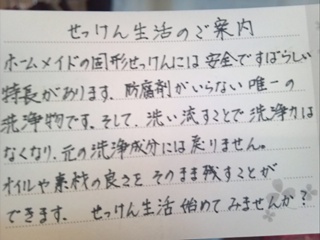 せっけん生活のご案内
ホームメイドの固形せっけんには安全ですばらしい
特長があります。防腐剤がいらない唯一の
洗浄物です。そして、洗い流すことで洗浄力は
なくなり、元の洗浄成分には戻りません。
オイルや素材の良さをそのまま残すことが
できます。 せっけん生活始めてみませんか?